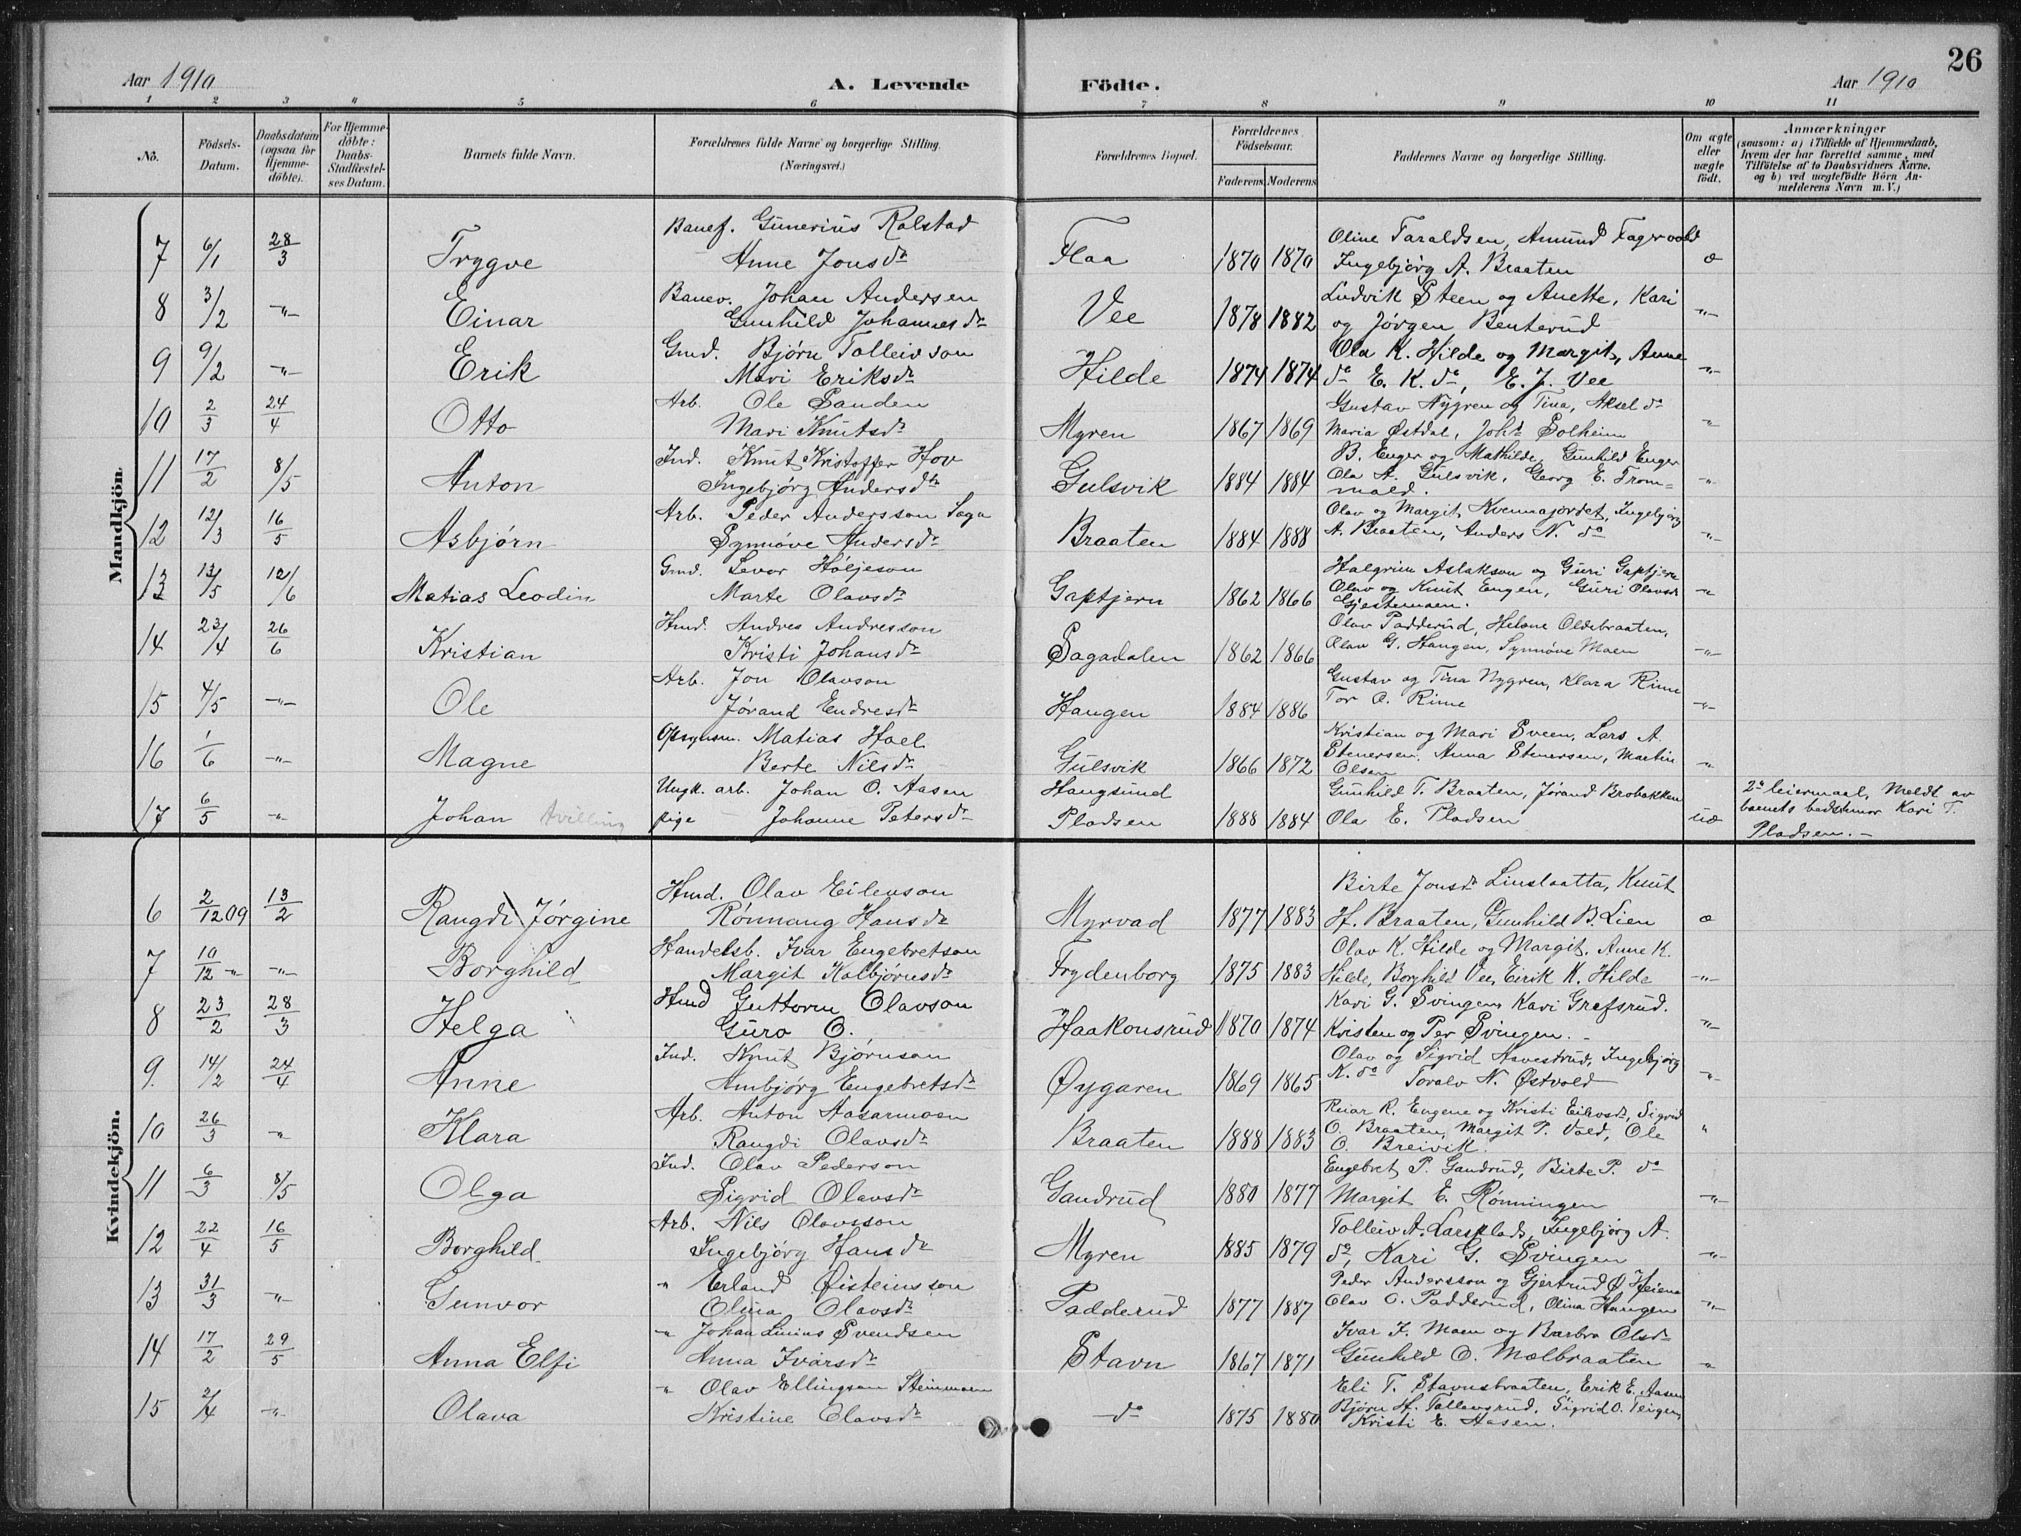 26
Aar 1910
A. Levende
Födte.
Aar 1910
1 2 3 4 5 6 7 8 9 10 11
No.
Födsels-Datum.
Daabsdatum (ogsaa for Hjemmedöbte).
For Hjemmedöbte: Daabs-Stadfæstelses Datum.
Barnets fulde Navn.
Forældrenes fulde Navne og borgerlige Stilling. (Næringsvei.)
Forældrenes Bopæl.
Forældrenes Födselsaar.
Faderens Moderens
Faddernes Navne og borgerlige Stilling.
Om ægte eller uægte födt.
Anmærkninger
(saasom: a) i Tilfælde af Hjemmedaab, hvem der har forrettet samme, med Tilföielse af to Daabsvidners Navne. og b) ved uægtefödte Börn Anmelderens Navn m. V.)
Mandkjön.
Banef. Gunerius Rolstad Oline Taraldsen, Amund Fagervold
7 6/1 28/3 Trygve Anne Jonsdr Flaa 1870 1870 Ingebjörg A. Braaten æ
Banev. Johan Andersen Ludvik Steen og Anette, Kari
8 3/2 -"- Einar Gunhild Johannesdr Vee 1878 1882 og Jörgen Benterud -"-
Gmd. Bjørn Tolleivson Ola K. Hilde og Margit, Anne
9 9/2 -"- Erik Mari Eriksdr Hilde 1874 1874 do E. K. do, E. J. Vee -"-
Arb. Ole Sanden Gustav Nygren og Tina, Aksel do
10 2/3 24/4 Otto Mari Knutsdr Myren 1867 1869 Maria Østdal, Joh. Solheim "
Ind. Knut Kristoffer Hov B. Enger og Mathilde, Gunhild Enger
11 17/2 8/5 Anton Ingebjörg Andersdtr Gulsvik 1884 1884 Ola A. Gulsvik, Georg E. Trommald. -"-
Arb. Peder Andersson Saga Olav og Margit Kvennajordet, Ingebjörg
12 12/3 16/5 Asbjørn Synnöve Andersdr Braaten 1884 1888 A. Braaten, Anders N. do -"-
Gmd. Levor Höljeson Halgrim Aslakson og Guri Gaptjern
13 13/5 12/6 Matias Leodin Marte Olavsdr Gaptjern 1862 1866 Olav og Knut Engen, Guri Olavsdr Gjestemoen. -"-
Hmd. Andres Andresson Olav Padderud, Helene Oldebraaten,
14 23/4 26/6 Kristian Kristi Johansdr Sagadalen 1862 1866 Olav G. Haugen, Synnöve Moen -"-
Arb. Jon Olavson Gustav og Tina Nygren, Klara Rime
15 4/5 -"- Ole Jørand Endresdr Haugen 1884 1886 Tor O. Rime -"-
Opsynsm. Matias Hoel Kristian og Mari Sveen, Lars A.
16 1/6 -"- Magne Berte Nilsdr Gulsvik 1866 1872 Stenersen, Anna Stenersen, Martin Olsen "
Ungk. arb. Johan O. Aasen Haugsund Gunhild T. Braaten, Jørand Brobakken 2. leiermaal, Meldt av
17 6/5 -"- Johan tvilling pige Johanne Petersdr Pladsen 1888 1884 Ola E. Pladsen uæ barnets bedstemor Kari T.
Pladsen. -
Kvindekjön.
Hmd. Olav Eilevson Birte Jonsdr Linslaatta, Knut
6 2/12 09 13/2 Rangdi Jörgine Rönnaug Hansdr Myrvad 1877 1883 H. Braaten, Gunhild B. Lien æ
Handelsb. Ivar Engebretson Olav K. Hilde og Margit, Anne K.
7 10/12 -"- -"- Borghild Margit Kolbjörnsdr Frydenborg 1875 1883 Hilde, Borghild Vee, Eirik K. Hilde -"-
Hmd Guttorm Olavson Kari G. Svingen, Kari Grefsrud.
8 23/2 28/3 Helga Guro O. Haakonsrud 1870 1874 Kristen og Per Svingen. - -"-
Ind. Knut Bjørnson Olav og Sigrid Asvestrud, Ingebjörg
9. 14/2 24/4 Anne Ambjörg Engebretsdr Öygaren 1869 1865 K. do Toralv N. Østvold -"-
Arb. Anton Aasarmoen Reiar R. Eugene og Kristi Eilevsdr, Sigrid
10 26/3 -"- Klara Rangdi Olavsdr Braaten 1888 1883 O. Braaten, Margit P. Vold, Ole O. Breivik. "
Ind. Olav Pederson Engebret P. Gandrud, Birte P. do
11 6/3 8/5 Olga Sigrid Olavsdr Gandrud 1880 1877 Margit E. Rönningen -"-
Arb. Nils Olavsson Tolleiv A. Larsplads, Ingebjörg A.
12 22/4 16/5 Borghild Ingebjörg Hansdr Myren 1885 1879 do, Kari G. Svingen -"-
" Erland Øisteinsson Peder Andersson og Gjertrud Ø Heiena
13 31/3 -"- Gunvor Olina Olavsdr Padderud 1877 1887 Olav O. Padderud, Olina Haugen -"-
-"- Johan Linius Svendsen Ivar J. Moen og Barbro Olsdr
14 17/2 29/5 Anna Elfi Anna Ivarsdr Stavn 1867 1871 Gunhild O. Mælbraaten "
-"- Olav Ellingson Steinmoen Eli T. Stavnsbraaten, Erik E. Aasen
15 2/4 -"- Olava Kristine Olavsdr - do 1875 1880 Bjørn H. Tollevsrud, Sigrid O. Teigen,
Kristi E. Aasen.